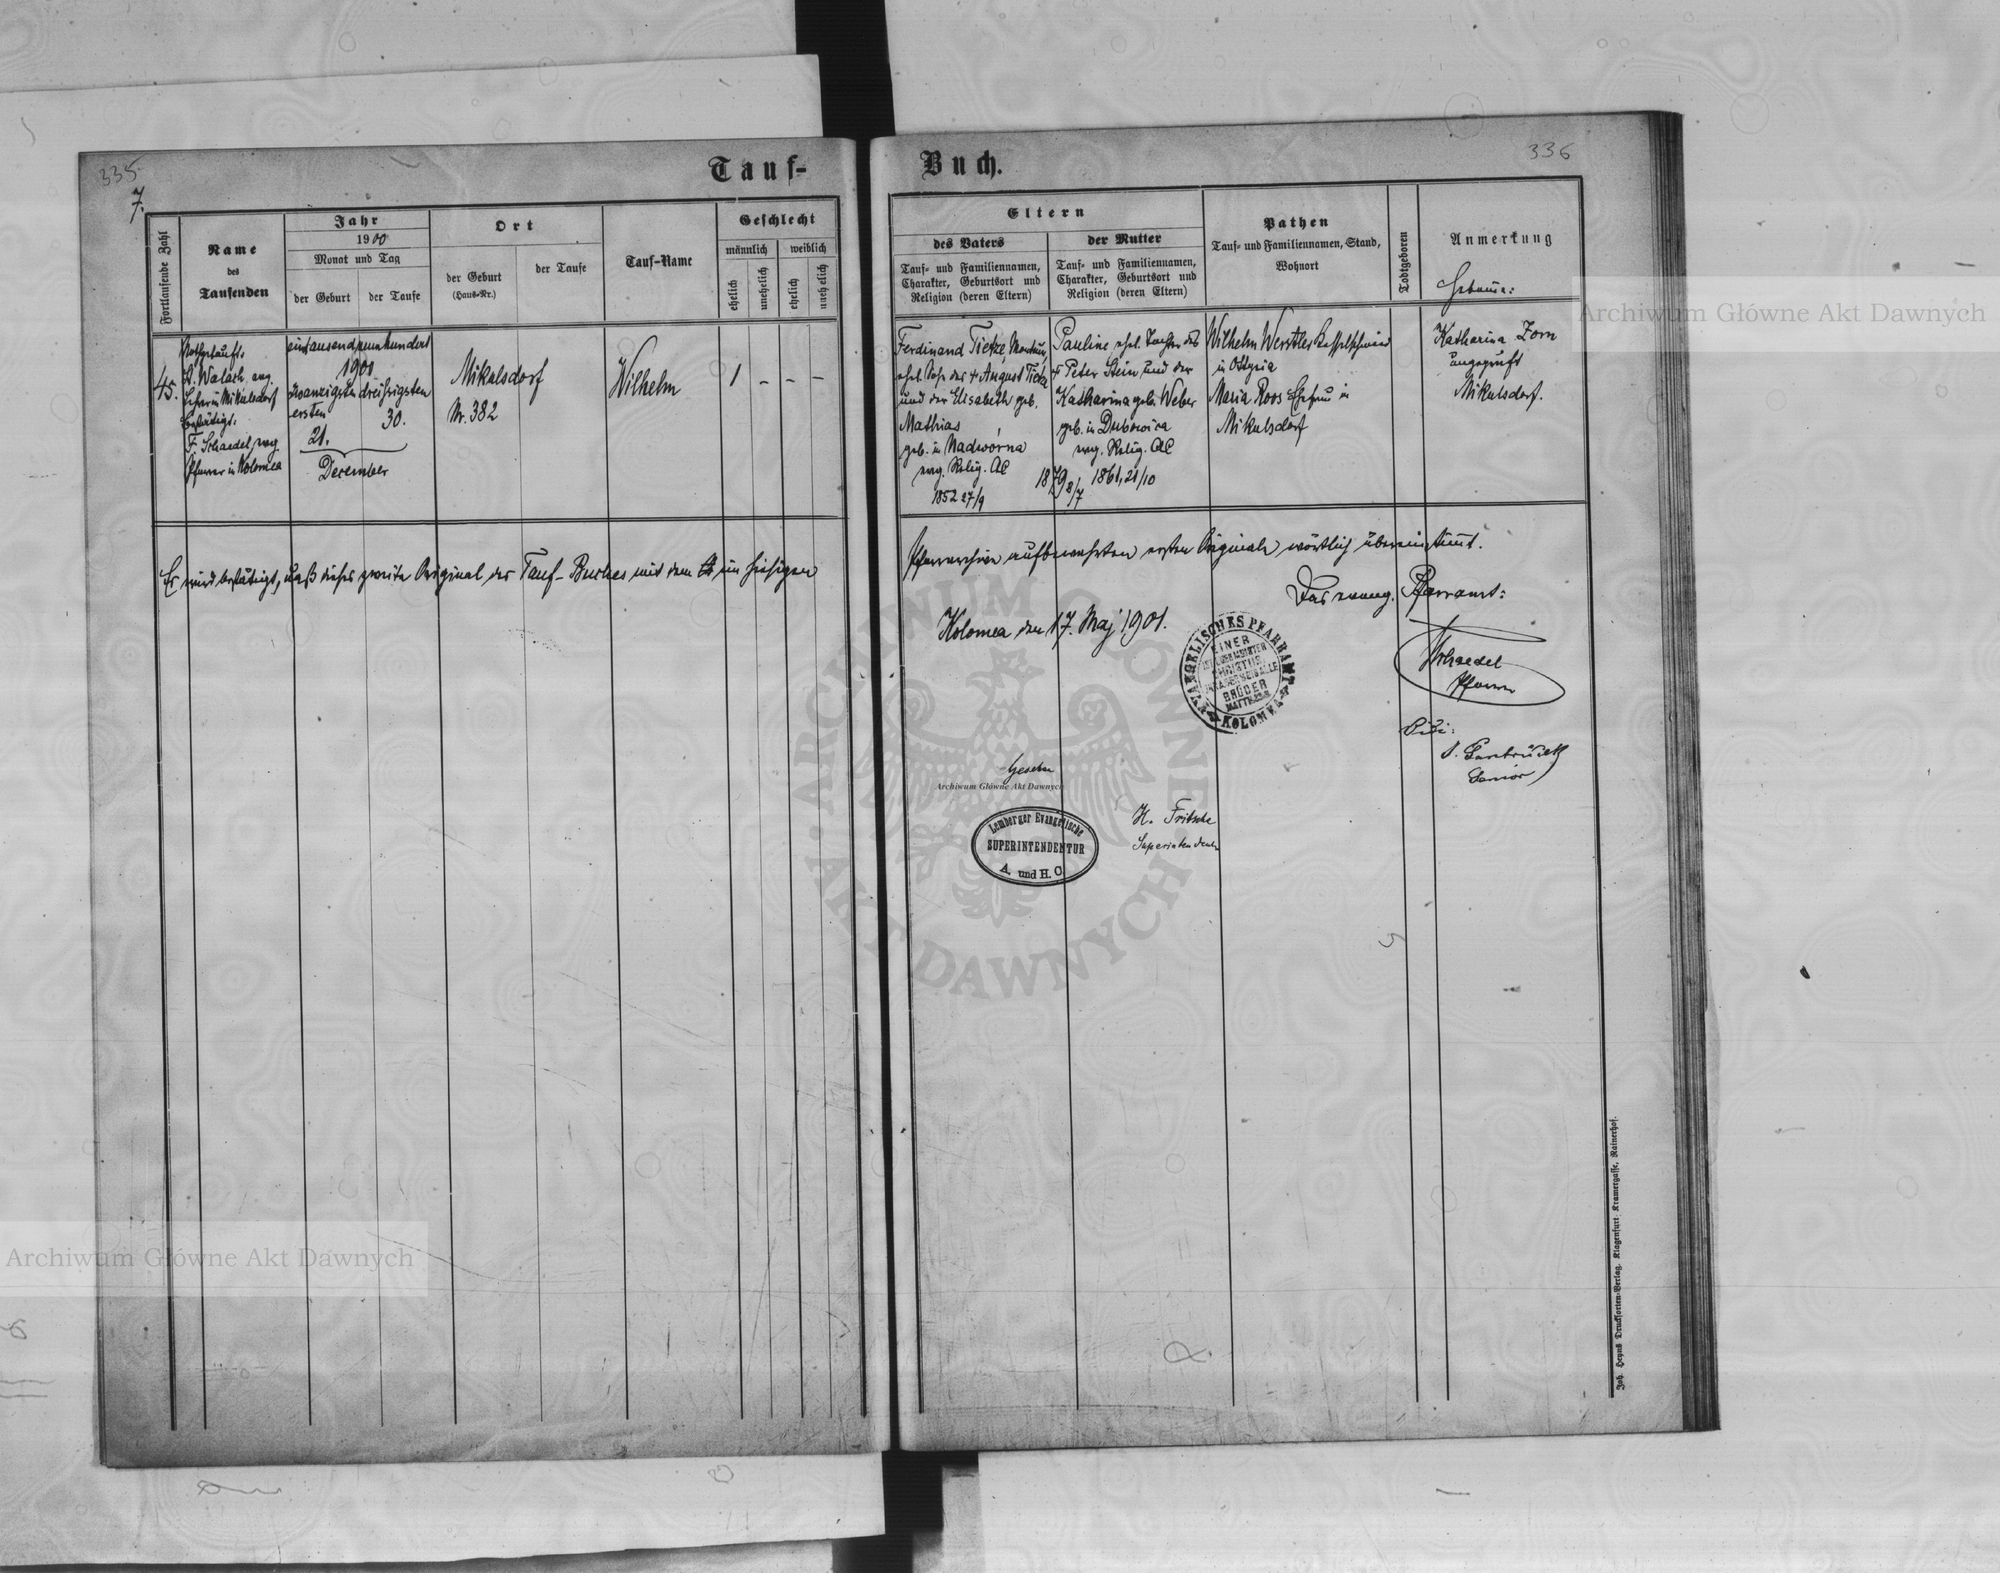 335
7.
Tauf-
Fortlaufende Zahl
Name
des
Taufenden
Jahr
1900
Monat und Tag
der Geburt
der Taufe
Ort
der Geburt
(Haus-Nr.)
der Taufe
Tauf-Name
Geschlecht
männlich
weiblich
ehelich
unehelich
ehelich
unehelich
45.
Nothgetauft:
Walach, evg.
Lehrer in Mikulsdorf
Bestätigt:
F. Schaedel, evg
Pfarrer in Kolomea
eintausendneunhundert
1900
einundzwanzigsten dreißigsten
ersten
21.
30.
December
Mikulsdorf
Nr. 382
Wilhelm
1 - - -
Es wird bestätigt, daß dieses zweite Original des Tauf-Buches mit dem im hiesigen
336
Buch.
Eltern
des Vaters
Tauf- und Familiennamen,
Charakter, Geburtsort und
Religion (deren Eltern)
der Mutter
Tauf- und Familiennamen,
Charakter, Geburtsort und
Religion (deren Eltern)
Pathen
Tauf- und Familiennamen, Stand,
Wohnort
Todtgeboren
Anmerkung
Hebamme:
Ferdinand Tietze,
ehel. Sohn des + August Tietze
und der Elisabeth geb.
Mathias
geb. in Nadwórna
evg. Relig. AC
1852 27/9
Pauline ehel. Tochter des
+ Peter Stein und der
Katharina geb. Weber
geb. in Dubowica
evg. Relig. AC
1861, 21/10
1879 8/7
Wilhelm Werstler Kesselschmied
in Ottynia
Maria Roos Ehefrau in
Mikulsdorf
Katharina Zorn
ungeprüft
Mikulsdorf.
Pfarrarchive aufbewahrten ersten Originale wörtlich übereinstimmt.
Das evang. Pfarramt:
Kolomea den 17. Maj 1901.
EVANGELISCHES PFARRAMT
KOLOMEA
EINER
IST EUER MEISTER
CHRISTUS
IHR ABER SEID ALLE
BRÜDER
MATTH.
Schaedel
Pfarrer
Vidi:
Senior
Gesehen
Archiwum Główne Akt Dawnych
Lemberger Evangelische
SUPERINTENDENTUR
A. und H. C.
H. Fritsche
Superintendent
Joh. Heyns Drucksorten-Verlag, Klagenfurt, Kramergasse, Rainerhof.
Archiwum Główne Akt Dawnych
Archiwum Główne Akt Dawnych
ARCHIWUM GŁÓWNE
AKT DAWNYCH